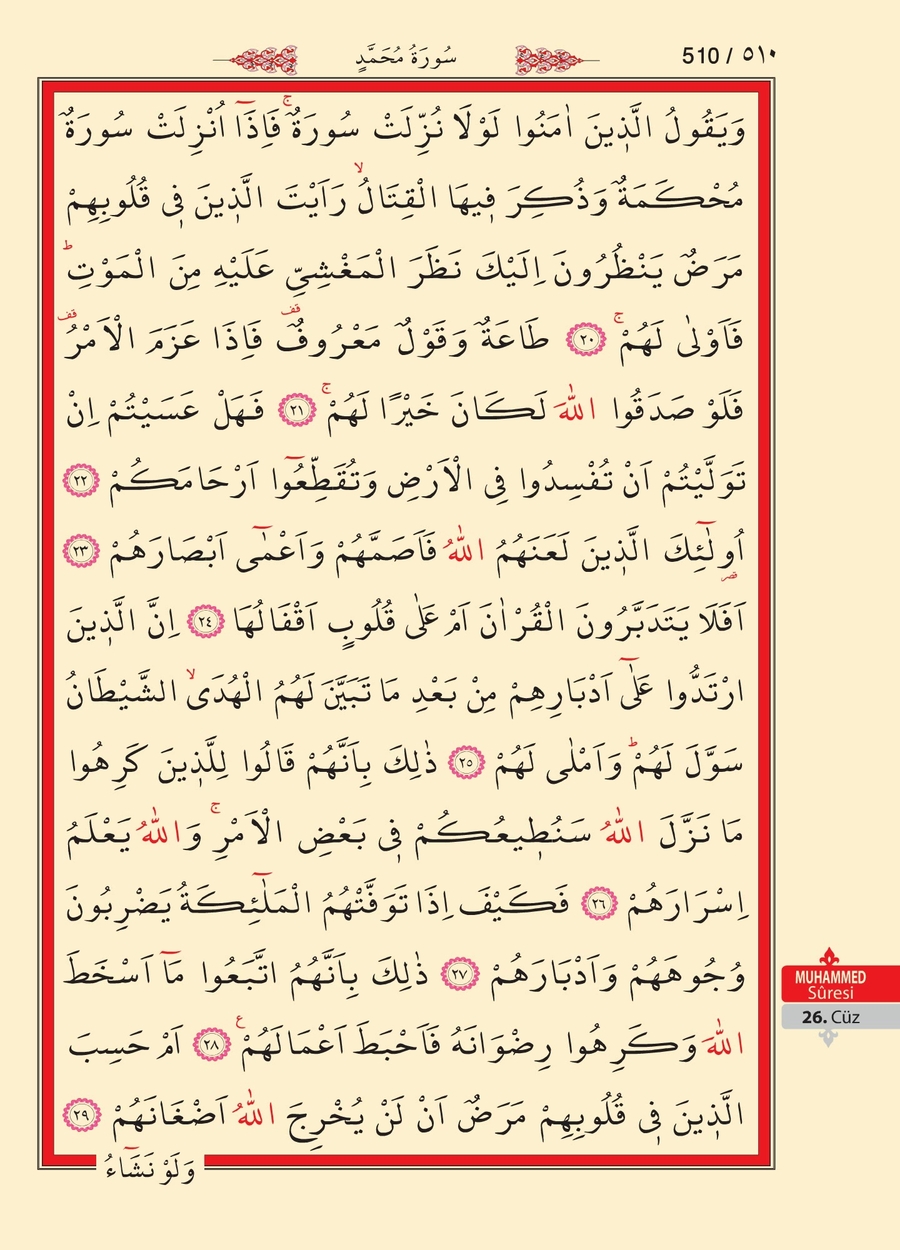 510 / ٥١٠
سُورَةُ مُحَمَّدٍ
وَيَقُولُ الَّذ۪ينَ اٰمَنُوا لَوْلَا نُزِّلَتْ سُورَةٌۚ فَاِذَٓا اُنْزِلَتْ سُورَةٌ
مُحْكَمَةٌ وَذُكِرَ ف۪يهَا الْقِتَالُۙ رَاَيْتَ الَّذ۪ينَ ف۪ي قُلُوبِهِمْ
مَرَضٌ يَنْظُرُونَ اِلَيْكَ نَظَرَ الْمَغْشِيِّ عَلَيْهِ مِنَ الْمَوْتِۜ
فَاَوْلٰى لَهُمْۚ ﴿٢٠﴾ طَاعَةٌ وَقَوْلٌ مَعْرُوفٌ۠ قف فَاِذَا عَزَمَ الْاَمْرُ۠ قف
فَلَوْ صَدَقُوا اللّٰهَ لَكَانَ خَيْرًا لَهُمْۚ ﴿٢١﴾ فَهَلْ عَسَيْتُمْ اِنْ
تَوَلَّيْتُمْ اَنْ تُفْسِدُوا فِي الْاَرْضِ وَتُقَطِّعُٓوا اَرْحَامَكُمْ ﴿٢٢﴾
اُو۬لٰٓئِكَ الَّذ۪ينَ لَعَنَهُمُ اللّٰهُ فَاَصَمَّهُمْ وَاَعْمٰٓى اَبْصَارَهُمْ ﴿٢٣﴾
اَفَلَا يَتَدَبَّرُونَ الْقُرْاٰنَ اَمْ عَلٰى قُلُوبٍ اَقْفَالُهَا ﴿٢٤﴾ اِنَّ الَّذ۪ينَ
ارْتَدُّوا عَلٰٓى اَدْبَارِهِمْ مِنْ بَعْدِ مَا تَبَيَّنَ لَهُمُ الْهُدَىۙ الشَّيْطَانُ
سَوَّلَ لَهُمْۜ وَاَمْلٰى لَهُمْ ﴿٢٥﴾ ذٰلِكَ بِاَنَّهُمْ قَالُوا لِلَّذ۪ينَ كَرِهُوا
مَا نَزَّلَ اللّٰهُ سَنُط۪يعُكُمْ ف۪ي بَعْضِ الْاَمْرِۚ وَاللّٰهُ يَعْلَمُ
اِسْرَارَهُمْ ﴿٢٦﴾ فَكَيْفَ اِذَا تَوَفَّتْهُمُ الْمَلٰٓئِكَةُ يَضْرِبُونَ
وُجُوهَهُمْ وَاَدْبَارَهُمْ ﴿٢٧﴾ ذٰلِكَ بِاَنَّهُمُ اتَّبَعُوا مَٓا اَسْخَطَ
اللّٰهَ وَكَرِهُوا رِضْوَانَهُ فَاَحْبَطَ اَعْمَالَهُمْ۟ ﴿٢٨﴾ اَمْ حَسِبَ
الَّذ۪ينَ ف۪ي قُلُوبِهِمْ مَرَضٌ اَنْ لَنْ يُخْرِجَ اللّٰهُ اَضْغَانَهُمْ ﴿٢٩﴾
وَلَوْ نَشَٓاءُ
MUHAMMED
Sûresi
26. Cüz